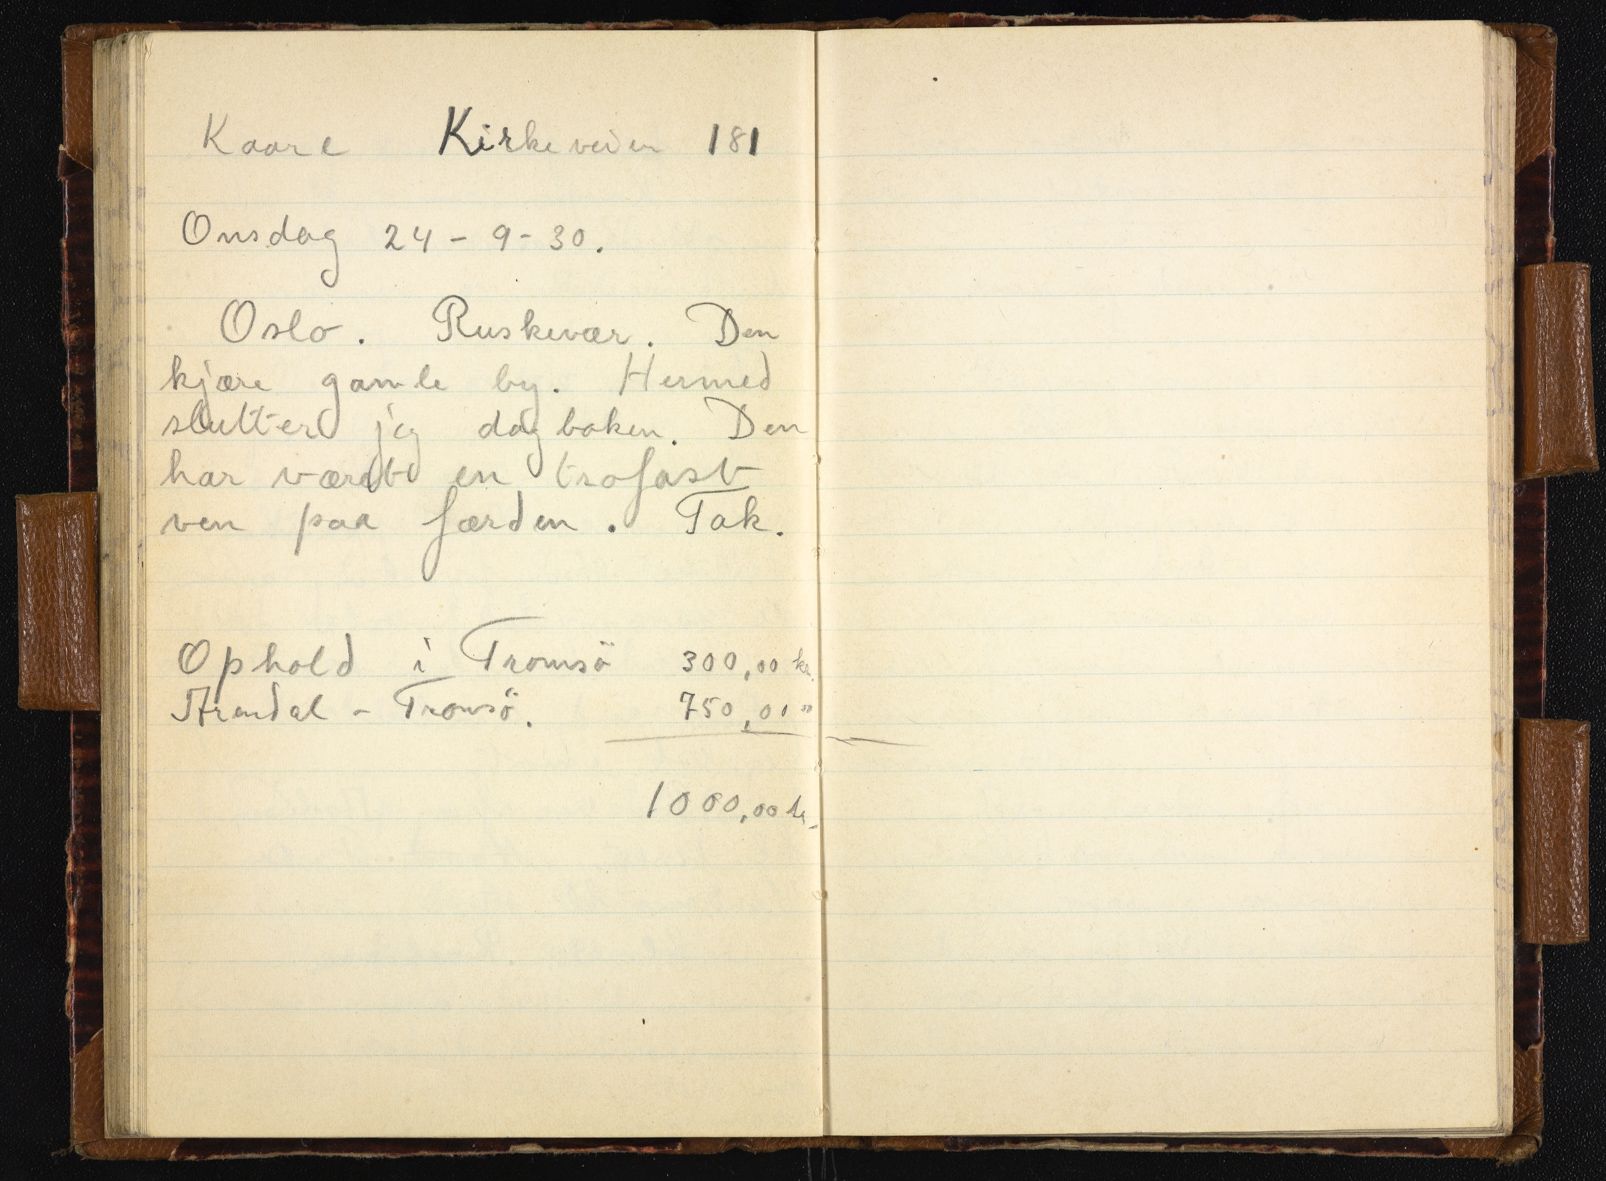 Kaare Kirkeveien 181
Onsdag 24-9-30.
Oslo. Ruskevær. Den
kjære gamle by. Hermed
slutter jeg dagboken. Den
har værdt en trofast
ven paa færden. Tak.
Ophold i Tromsö 300,00 kr.
Arendal - Tromsö. 750,00 "
1000,00 kr.